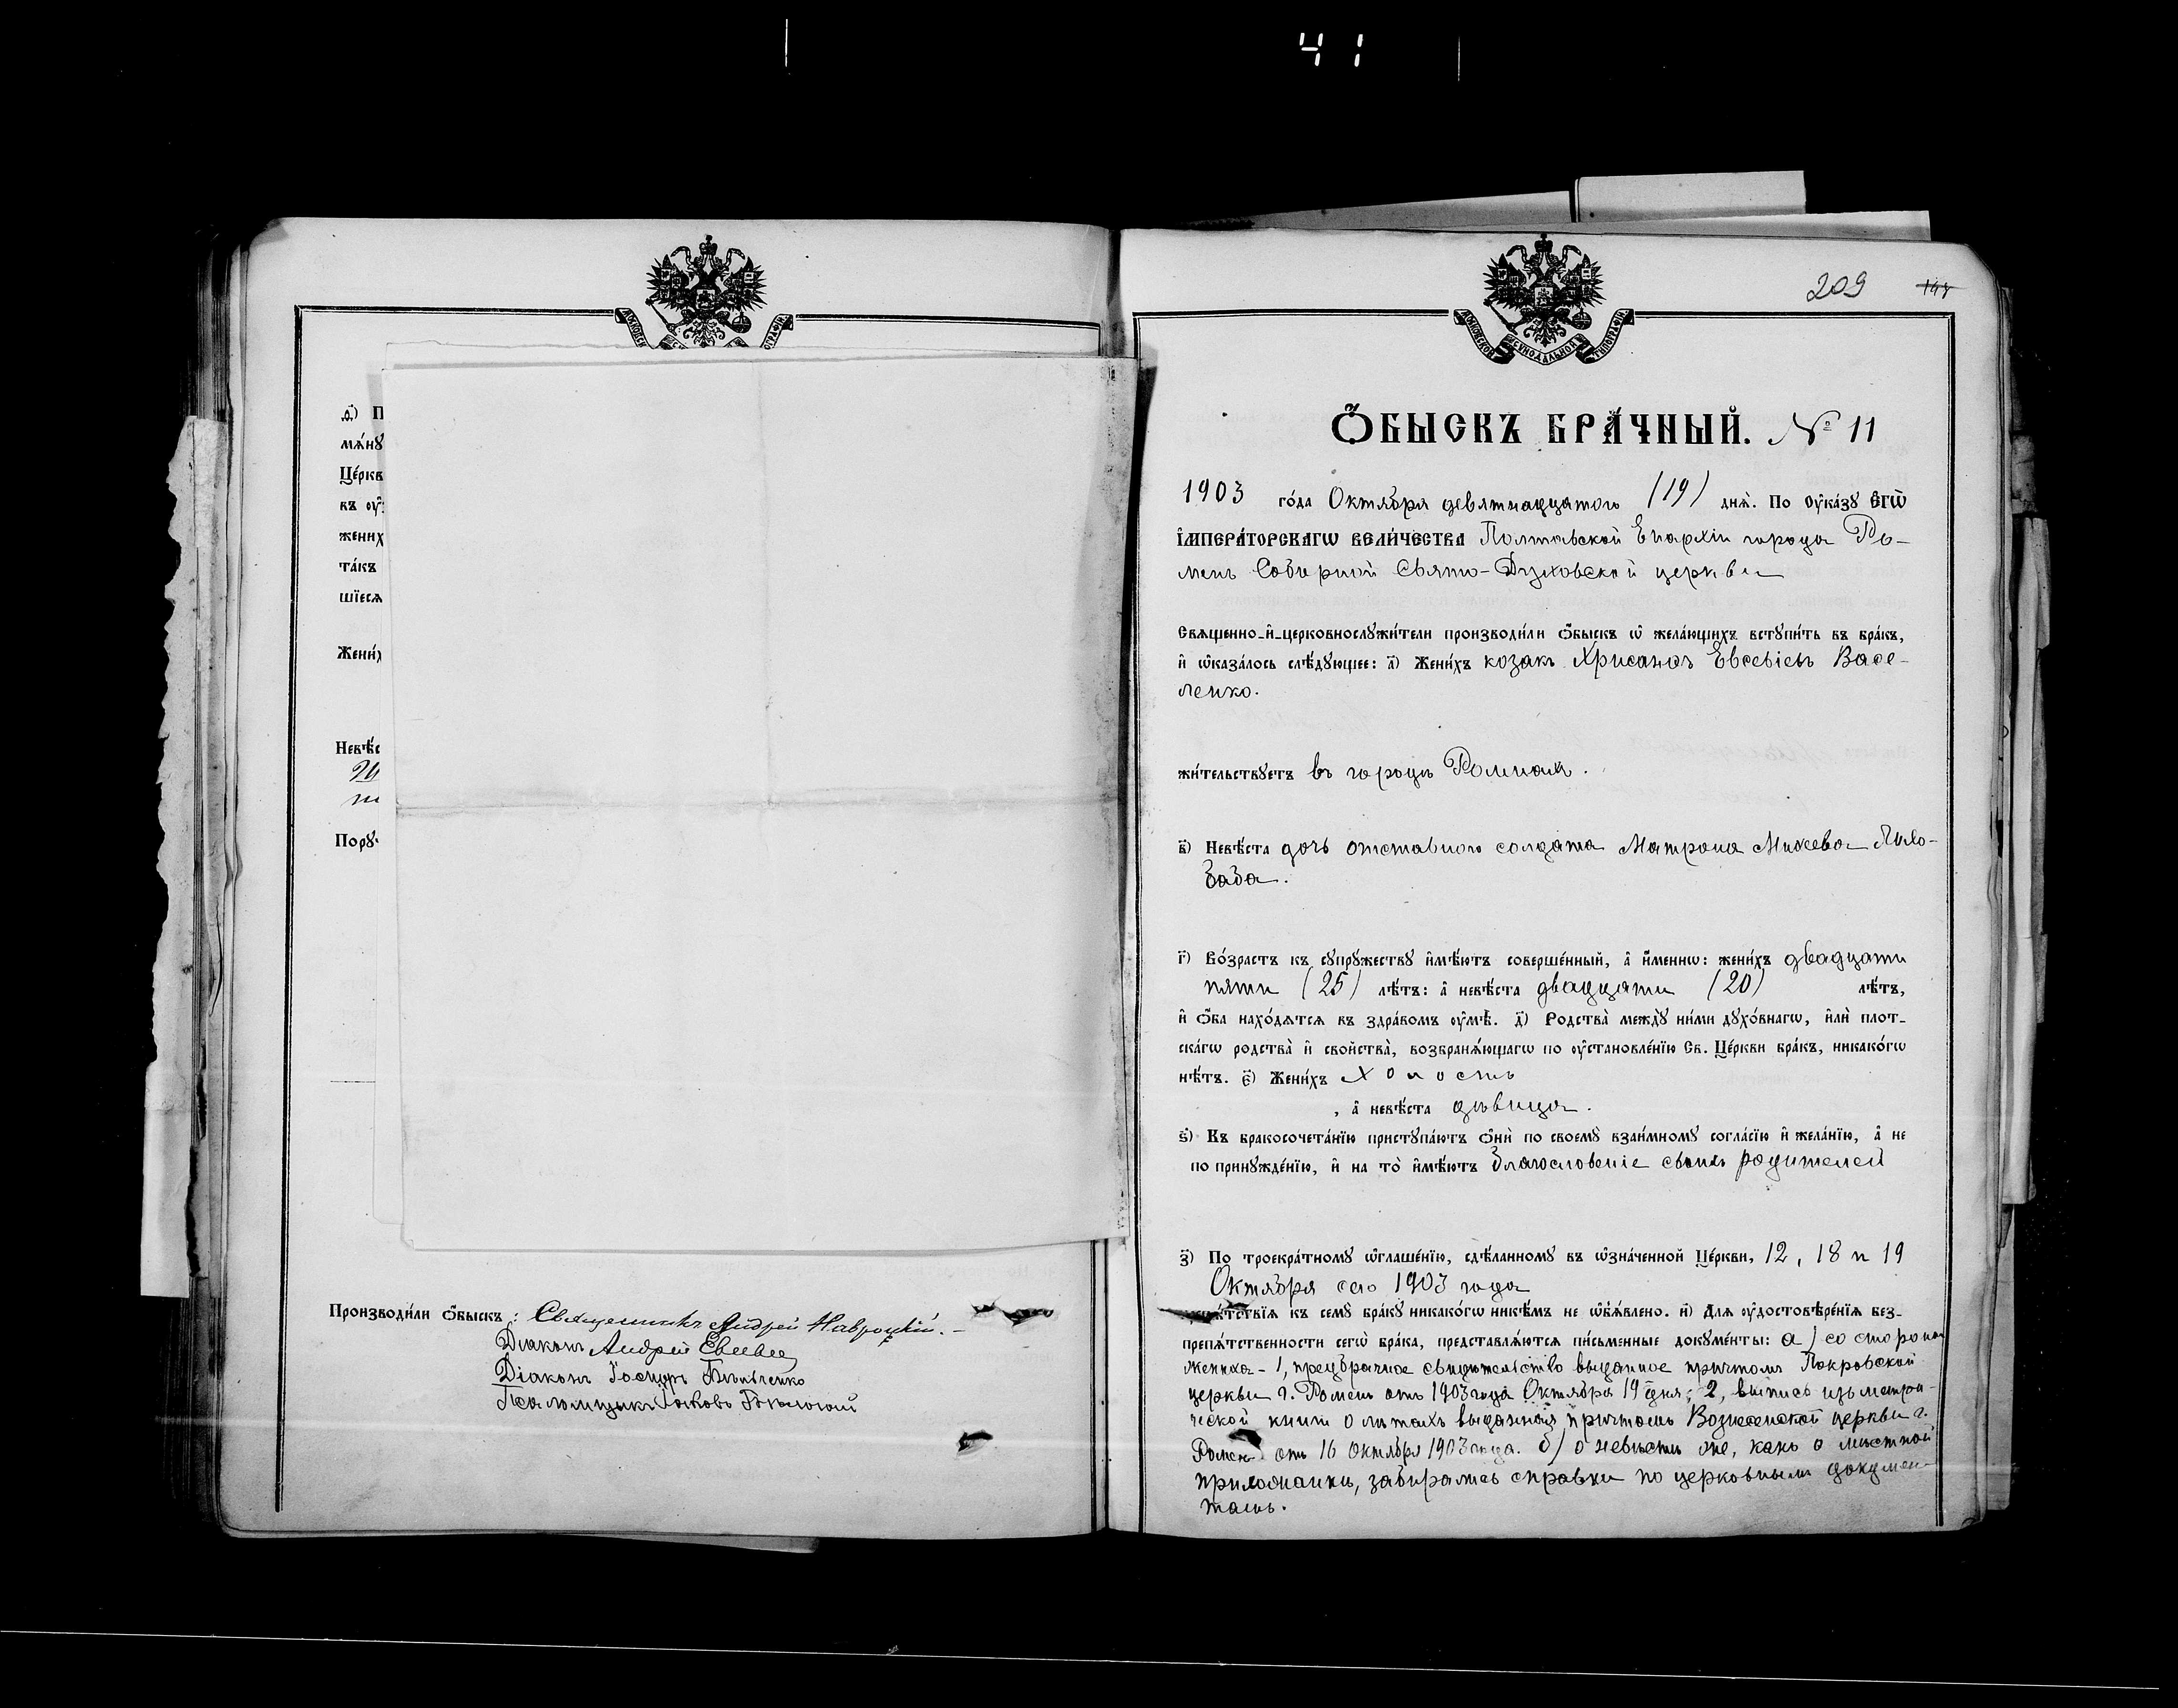 41
209
МОСКОВСКОЙ СѴНОДАЛЬНОЙ ТИПОГРАФІИ
д҃) П
мѧ́нꙋ
Це́ркв
въ оу҆
жених
та́къ
шїесѧ
Жени́х
Невѣ́с
Порꙋ́
Производи́ли ѻ҆́быскъ: Священникъ Андрей Навроцкій.
Діаконъ Андрей Евсевс
Діаконъ Іосифъ
Псаломщикъ Іаковъ
Ѻ҆БЫСКЪ БРА́ЧНЫЙ. № 11
1903 го́да Октября девятнадцатого (19) днѧ̀. По Оу҆ка́зꙋ Є҆ГѠ̀
І҆МПЕРА́ТОРСКАГѠ ВЕЛИ́ЧЕСТВА Полтавской Епархіи города Ро-
менъ Соборной Свято-Духовской церкви
Свѧще́нно-и҆-церковнослꙋжи́тели производи́ли ѻ҆́быскъ ѡ҆ жела́ющихъ встꙋпи́ть въ бра́къ,
и҆ ѡ҆каза́лось слѣ́дꙋющее: а҃) Жени́хъ козакъ Хрисанѳъ Евсевіевъ Васе-
ленко.
жи́тельствꙋетъ въ городѣ Ромнахъ.
в҃) Невѣ́ста дочь отставного солдата Матрона Михеева Лихо-
баба.
г҃) Во́зрастъ къ сꙋпрꙋ́жествꙋ и҆мѣ́ютъ соверше́нный, а҆ и҆́меннѡ: жени́хъ двадцати
пяти (25) лѣ́тъ: а҆ невѣ́ста двадцати (20) лѣ́тъ,
и҆ ѻ҆́ба нахо́дѧтсѧ въ здра́вомъ оу҆мѣ̀. д҃) Родства̀ междꙋ̀ ни́ми дꙋхо́внагѡ, и҆лѝ пло́т-
скагѡ родства̀ и҆ сво́йства̀, возбранѧ́ющагѡ по оу҆становле́нїю Св. Це́ркви бра́къ, никако́гѡ
нѣ́тъ. є҃) Жени́хъ холостъ
, а҆ невѣ́ста дѣвица.
ѕ҃) Къ бракосочета́нїю пристꙋпа́ютъ ѻ҆нѝ по своемꙋ̀ взаи́мномꙋ согла́сїю и҆ жела́нїю, а҆ не
по принꙋжде́нїю, и҆ на то̀ и҆мѣ́ютъ благословеніе своихъ родителей
з҃) По троекра́тномꙋ ѡ҆глаше́нїю, сдѣ́ланномꙋ въ ѡ҆зна́ченной Це́ркви, 12, 18 и 19
Октября сего 1903 года
препѧ́тствїѧ къ семꙋ̀ бра́кꙋ никако́гѡ никѣ́мъ не ѡ҆б̾ѧ́влено. и҃) Длѧ оу҆достовѣре́нїѧ без-
препѧ́тственности сегѡ̀ бра́ка, представлѧ́ютсѧ пи́сьменные докꙋме́нты: а) со стороны
жениха - 1, предбрачное свидѣтельство выданное причтомъ Покровской
церкви г. Роменъ отъ 1903 года Октября 19 дня; 2, выпись изъ метри-
ческой книги о лѣтахъ выданная причтомъ Вознесенской церкви г.
Роменъ отъ 16 Октября 1903 года. б) о невѣстѣ же, какъ о мѣстной
прихожанкѣ, забирались справки по церковнымъ докумен-
тамъ.